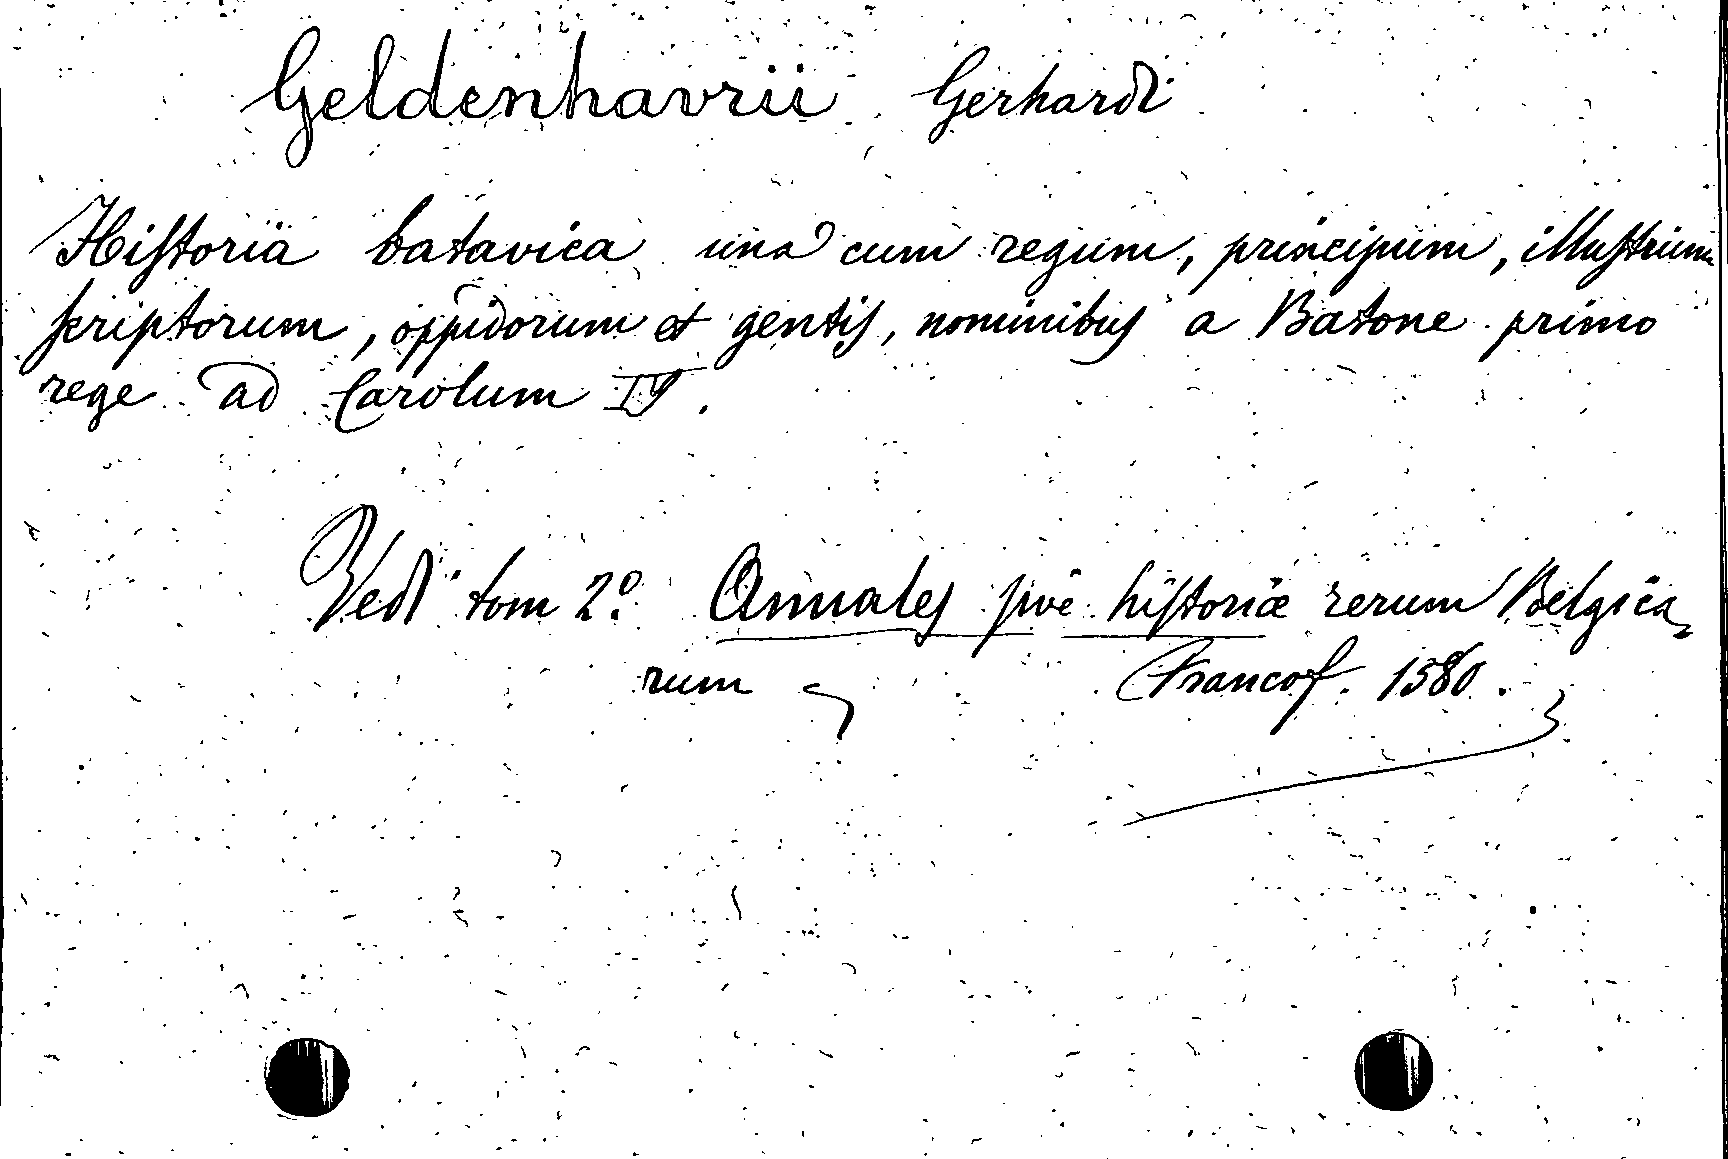 Geldenhavrii Gerhardi
Hiſtoria batavica una cum regum, principum, illuſtrium
ſcriptorum, oppidorum et gentiſ, nominibuſ a Batone primo
rege ad Carolum IV.
Vedi tom 2º Annaleſ ſive hiſtoriæ rerum Belgica
rum Francof. 1580.